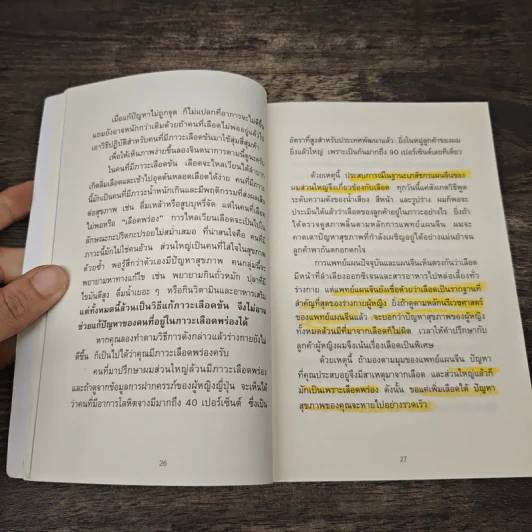 เมื่อแก้ปัญหาไม่ถูกจุด ก็ไม่แปลกที่อาการจะไม่ดีขึ้น
แถมยังอาจหนักกว่าเดิมด้วยถ้าคนที่เลือดไม่พออยู่แล้วไป
เอาวิธีปฏิบัติสำหรับคนที่มีภาวะเลือดข้นมาใช้สุ่มสี่สุ่มห้า
เพื่อให้เห็นภาพง่ายขึ้นลองจินตนาการตามนี้ดูนะครับ
ในคนที่มีภาวะเลือดข้น เลือดจะไหลเวียนได้ยาก
เกิดลิ่มเลือดและเข้าไปอุดตันหลอดเลือดได้ง่าย คนที่มีภาวะ
นี้มักเป็นคนที่มีภาวะน้ำหนักเกินและมีพฤติกรรมที่ส่งผลเสีย
ต่อสุขภาพ เช่น ดื่มเหล้าหรือสูบบุหรี่จัด แต่ในคนที่เลือด
ไม่พอหรือ “เลือดพร่อง” การไหลเวียนเลือดจะเป็นไปใน
ลักษณะกะปริดกะปรอยไม่สม่ำเสมอ ที่น่าสนใจคือ คนที่มี
ภาวะนี้มักไม่ใช่คนอ้วน ส่วนใหญ่เป็นคนที่ใส่ใจในสุขภาพ
ด้วยซ้ำ พอรู้สึกว่าตัวเองมีปัญหาสุขภาพ คนกลุ่มนี้จะ
พยายามหาทางแก้ไข เช่น พยายามกินถั่วหมัก ปลาที่มี
ไขมันดีสูง ดื่มน้ำเยอะ ๆ หรือกินวิตามินและอาหารเสริม
แต่ทั้งหมดนี้ล้วนเป็นวิธีแก้ภาวะเลือดข้น จึงไม่อาจ
ช่วยแก้ปัญหาของคนที่อยู่ในภาวะเลือดพร่องได้
หากคุณลองทำตามวิธีการดังกล่าวแล้วร่างกายยังไม่
ดีขึ้น ก็เป็นไปได้ว่าคุณมีภาวะเลือดพร่องครับ
คนที่มาปรึกษาผมส่วนใหญ่ล้วนมีภาวะเลือดพร่อง
และถ้าดูจากข้อมูลการฝากครรภ์ของผู้หญิงญี่ปุ่น จะเห็นได้
ว่าคนที่มีอาการโลหิตจางมีมากถึง 40 เปอร์เซ็นต์ ซึ่งเป็น
26
อัตราที่สูงสำหรับประเทศพัฒนาแล้ว ยิ่งในหมู่ลูกค้าของผม
ยิ่งแล้วใหญ่ เพราะเป็นกันมากถึง 90 เปอร์เซ็นต์เลยทีเดียว
ด้วยเหตุนี้ ประสบการณ์ในฐานะเภสัชกรแผนจีนของ
ผมส่วนใหญ่จึงเกี่ยวข้องกับเลือด ทุกวันนี้แค่สังเกตวิธีพูด
ระดับความดังของน้ำเสียง สีหน้า และรูปร่าง ผมก็พอจะ
ประเมินได้แล้วว่าเลือดของลูกค้าอยู่ในภาวะอย่างไร ยิ่งถ้า
ได้ตรวจดูสภาพลิ้นตามหลักการแพทย์แผนจีน ผมจะ
คาดเดาปัญหาสุขภาพที่กำลังเผชิญอยู่ได้อย่างแม่นยำจน
ลูกค้าพากันตกอกตกใจ
การแพทย์แผนปัจจุบันและแผนจีนเห็นตรงกันว่าเลือด
มีหน้าที่ลำเลียงออกซิเจนและสารอาหารไปหล่อเลี้ยงทั่ว
ร่างกาย แต่แพทย์แผนจีนยังเชื่อด้วยว่าเลือดเป็นรากฐานที่
สำคัญที่สุดของร่างกายผู้หญิง ยิ่งถ้าดูตามหลักนรีเวชศาสตร์
ของแพทย์แผนจีนแล้ว จะบอกว่าปัญหาสุขภาพของผู้หญิง
ทั้งหมดล้วนมีที่มาจากเลือดก็ไม่ผิด เวลาให้คำปรึกษากับ
ลูกค้าผู้หญิงผมจึงเน้นเรื่องเลือดเป็นพิเศษ
ด้วยเหตุนี้ ถ้ามองตามมุมของแพทย์แผนจีน ปัญหา
ที่คุณประสบอยู่จึงมีสาเหตุมาจากเลือด และส่วนใหญ่แล้วก็
มักเป็นเพราะเลือดพร่อง ดังนั้น ขอแค่เพิ่มเลือดได้ ปัญหา
สุขภาพของคุณจะหายไปอย่างรวดเร็ว
27